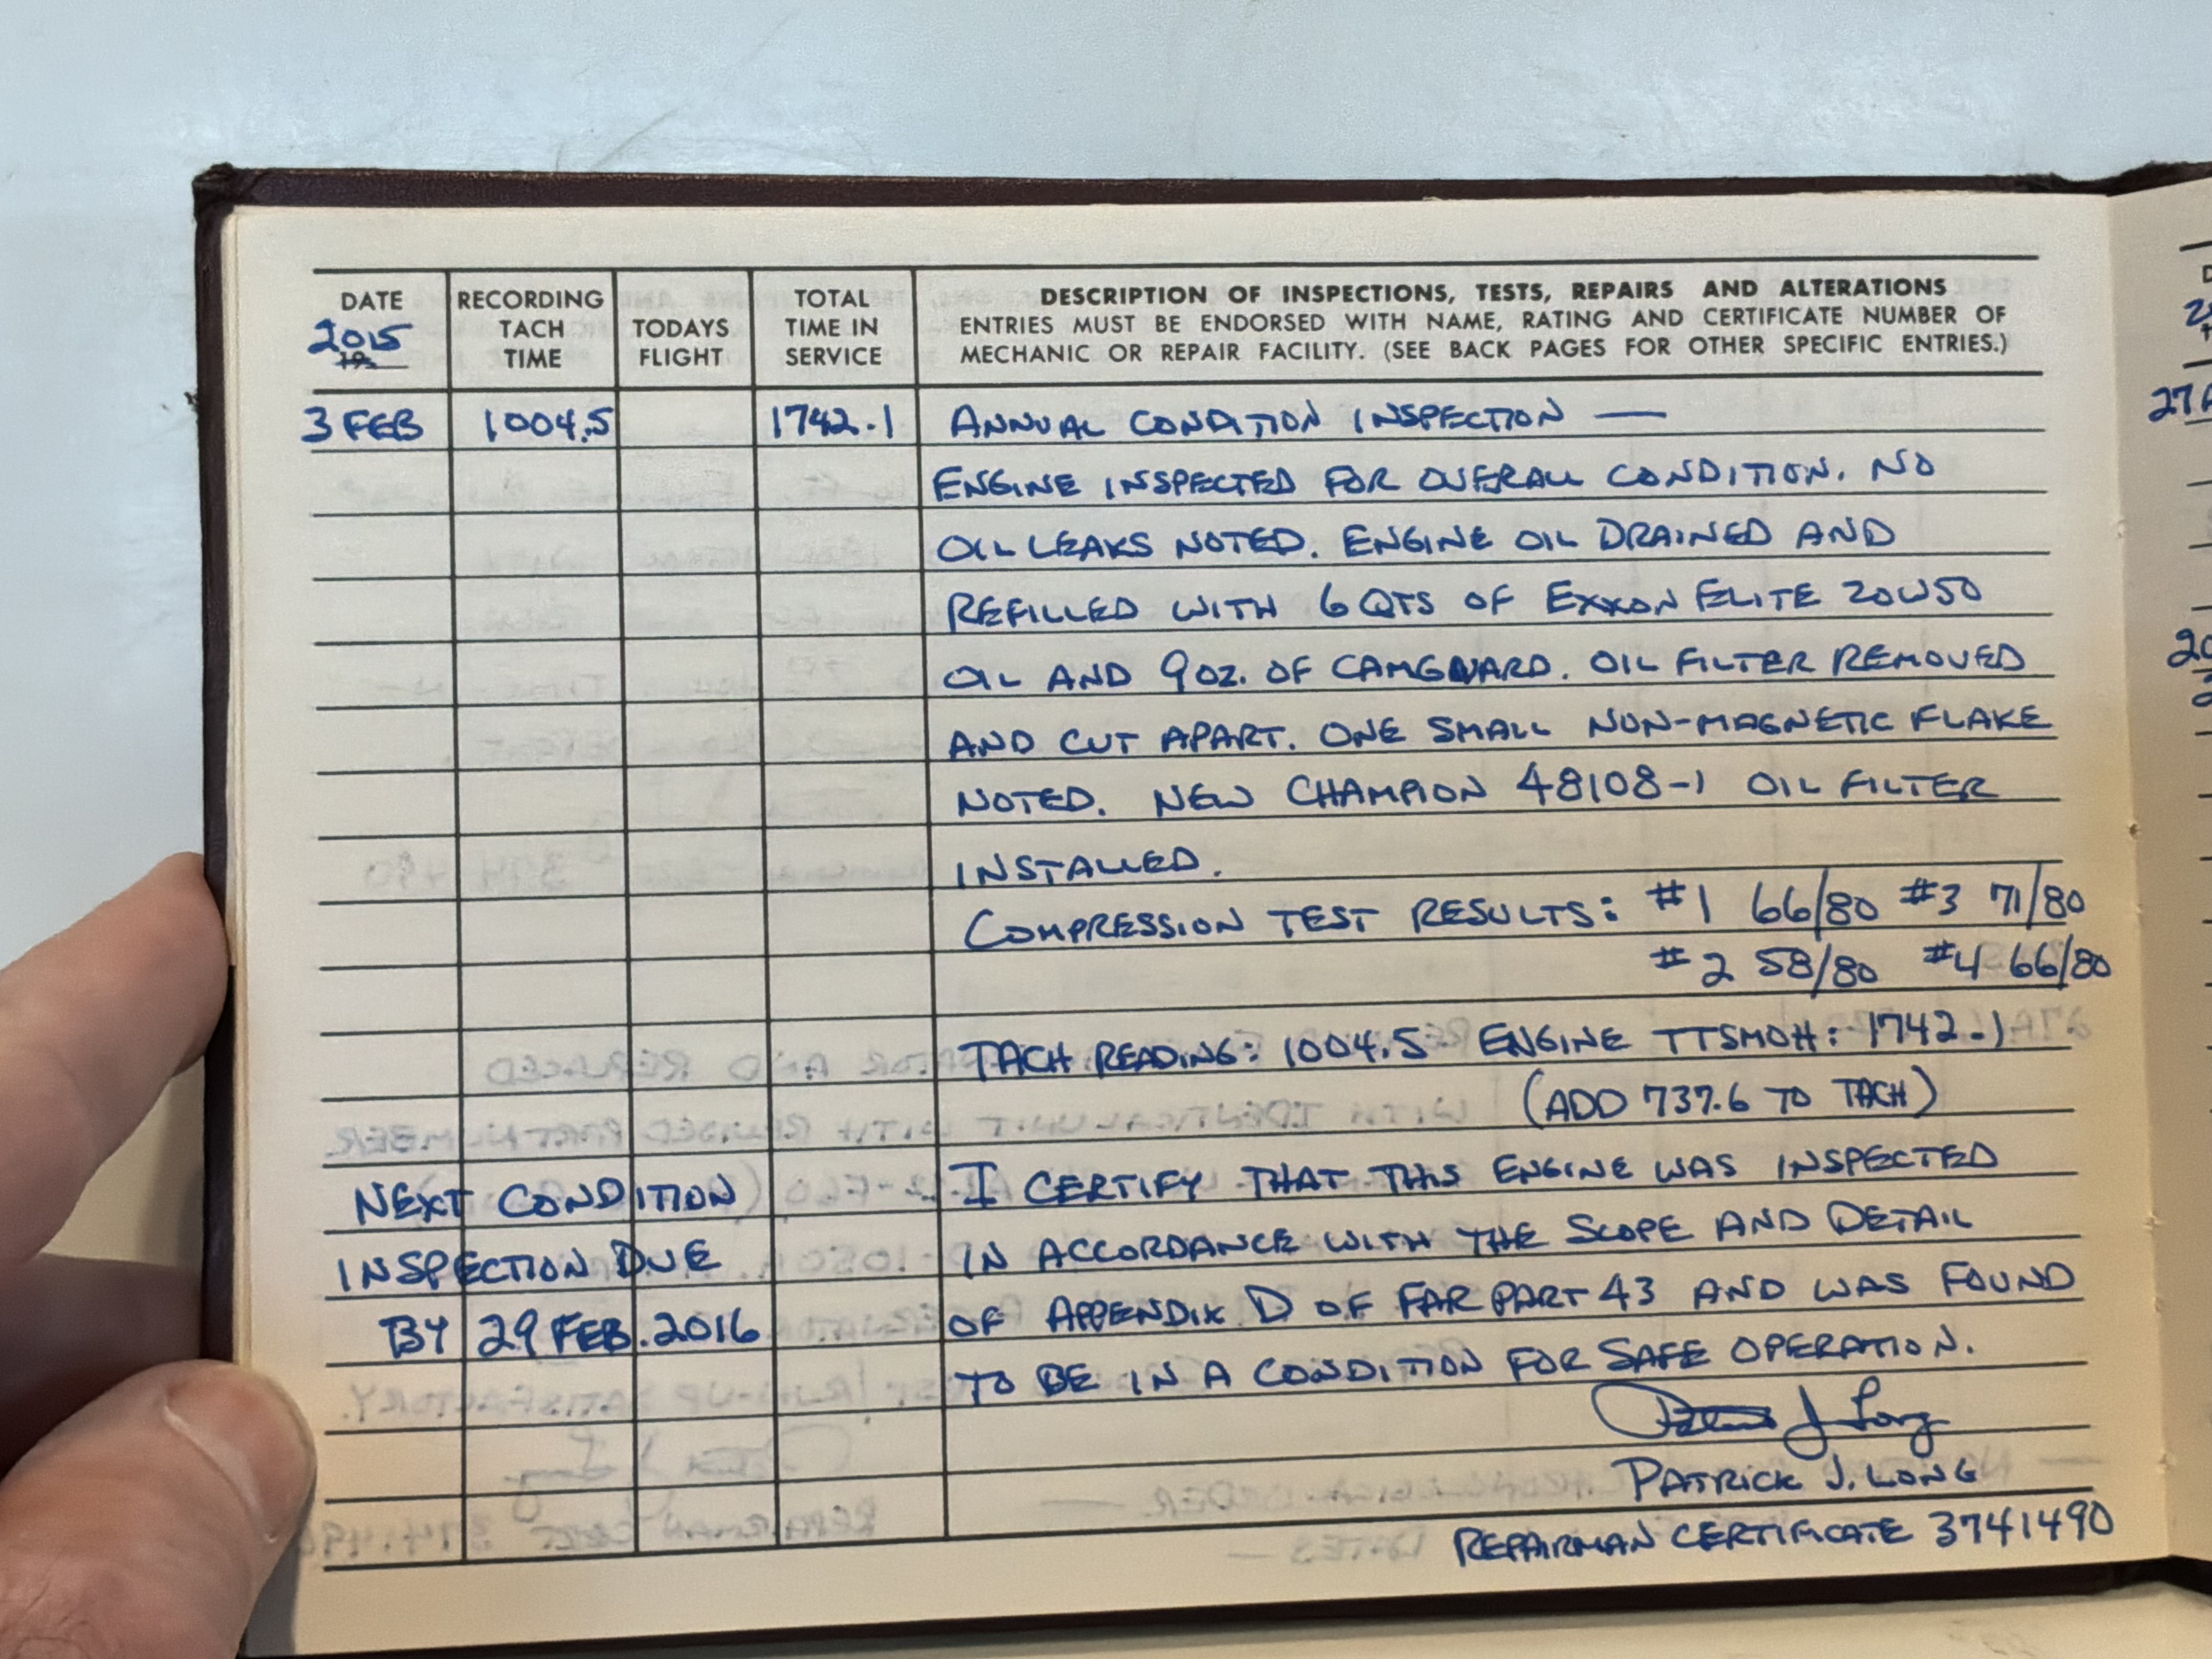 DATE
2015
19
RECORDING
TACH
TIME
TODAYS
FLIGHT
TOTAL
TIME IN
SERVICE
DESCRIPTION OF INSPECTIONS, TESTS, REPAIRS AND ALTERATIONS
ENTRIES MUST BE ENDORSED WITH NAME, RATING AND CERTIFICATE NUMBER OF
MECHANIC OR REPAIR FACILITY. (SEE BACK PAGES FOR OTHER SPECIFIC ENTRIES.)
3 FEB 1004.5 1742.1 ANNUAL CONDITION INSPECTION —
ENGINE INSPECTED FOR OVERALL CONDITION. NO
OIL LEAKS NOTED. ENGINE OIL DRAINED AND
REFILLED WITH 6 QTS OF EXXON ELITE 20W50
OIL AND 9 OZ. OF CAMGUARD. OIL FILTER REMOVED
AND CUT APART. ONE SMALL NON-MAGNETIC FLAKE
NOTED. NEW CHAMPION 48108-1 OIL FILTER
INSTALLED.
COMPRESSION TEST RESULTS: #1 66/80 #3 71/80
#2 58/80 #4 66/80
TACH READING: 1004.5 ENGINE TTSMOH: 1742.1
(ADD 737.6 TO TACH)
NEXT CONDITION
INSPECTION DUE
BY 29 FEB. 2016
I CERTIFY THAT THIS ENGINE WAS INSPECTED
IN ACCORDANCE WITH THE SCOPE AND DETAIL
OF APPENDIX D OF FAR PART 43 AND WAS FOUND
TO BE IN A CONDITION FOR SAFE OPERATION.
Patrick J Long
PATRICK J. LONG
REPAIRMAN CERTIFICATE 3741490